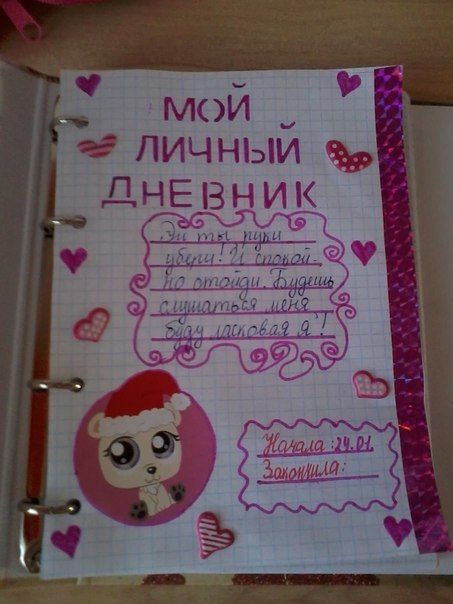 МОЙ
ЛИЧНЫЙ
ДНЕВНИК
Эй ты руки
убери! И спокой-
но отойди. Будешь
слушаться меня
буду ласковая я!
Начала: 24.01.
Закончила: